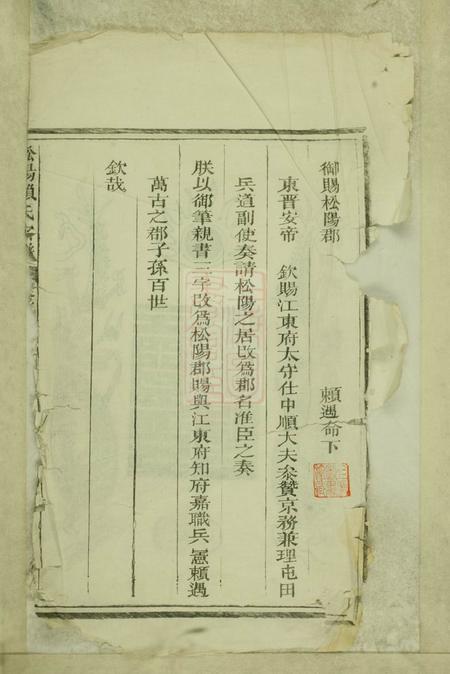 御賜松陽郡 賴遇奇下
東晋安帝 欽賜江東府太守仕中順大夫叅贊京務兼理屯田
兵道副使奏請松陽之居改爲郡名准臣之奏
朕以御筆親書三字改爲松陽郡賜與江東府知府嘉職兵憲賴遇
萬古之郡子孫百世
欽哉
松陽賴氏